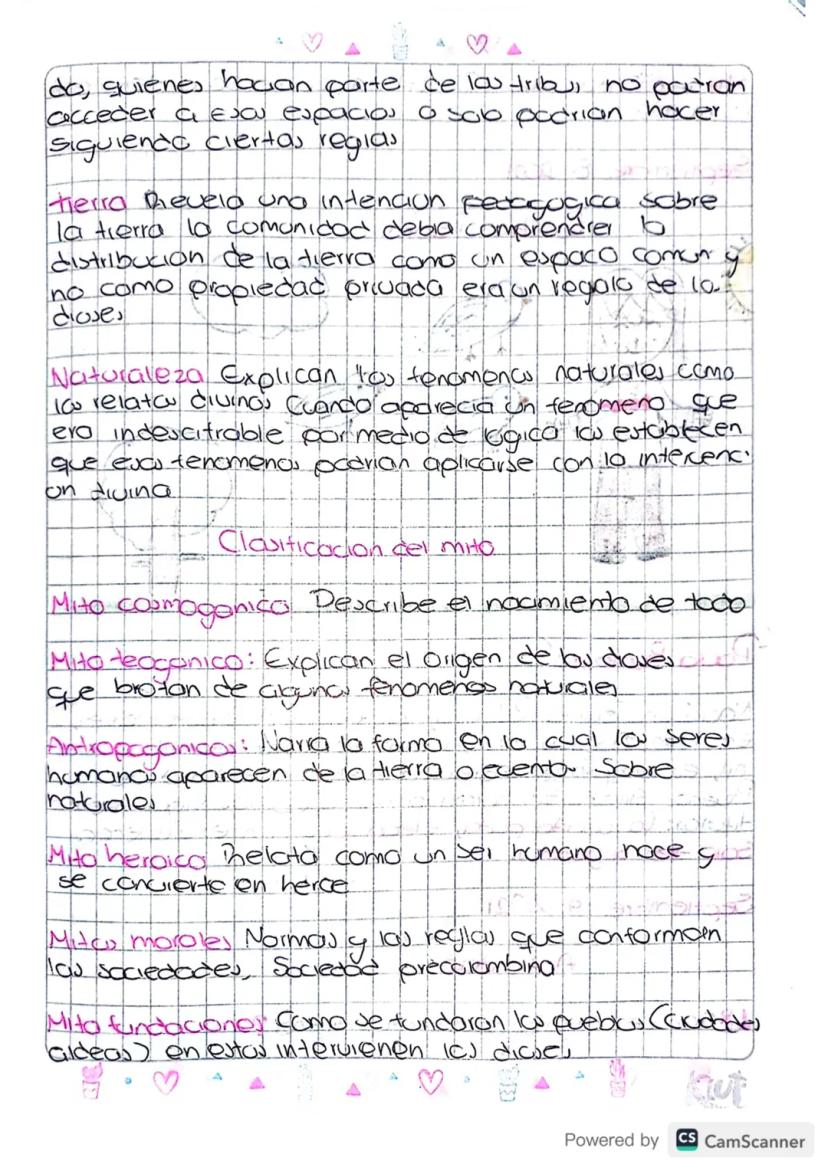 do, quienes hacian parte de las tribus no podrian
acceder a esos espacios o solo podrian hacer
siguiendo ciertas reglas
tierra Revela una intencion pedagogica sobre
la tierra la comunidad debia comprender la
distribucion de la tierra como un espaco comun y
no como propiedad privada era un regalo de los
dioses
Naturaleza Explican los fenomenos naturales como
los relatos divinos Cuando aparecia un fenomeno que
era indescifrable por medio de logica los establecen
que esos fenomenos podrian aplicarse con la intervenci
on divina
Clasificacion del mito
Mito cosmogonico Describe el nacimiento de todo
Mito teogonico: Explican el origen de los dioses
que brotan de algunos fenomenos naturales
Antropogonicos: Narra la forma en la cual los seres
humanos aparecen de la tierra o evento sobre
naturales
Mito heroico Relata como un ser humano nace y
se convierte en heroe
Mitos morales Normas y las reglas que conforman
las sociedades, Sociedad precolombina
Mito fundaciones Como se fundaron los pueblos (ciudades
aldeas) en estos intervienen los dioses
Kiut
Powered by CS CamScanner